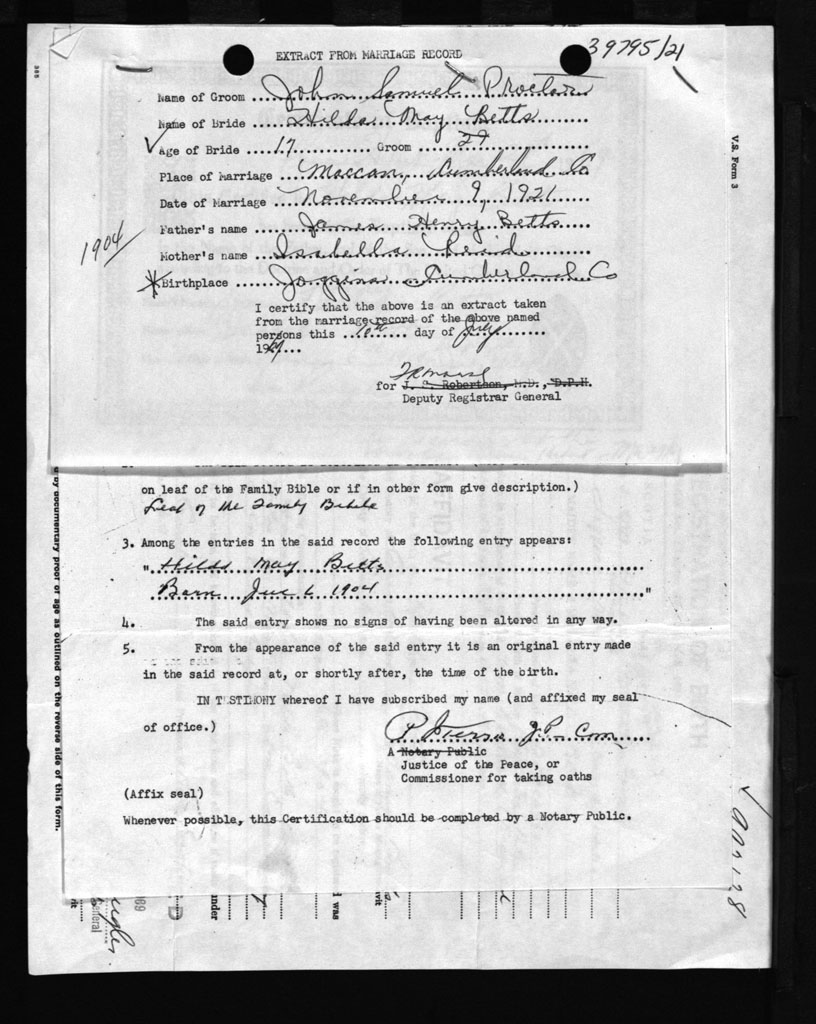 39795/21
EXTRACT FROM MARRIAGE RECORD
Name of Groom ... John Samuel Proctor
Name of Bride ... Hilda May Betts
Age of Bride ... 17 ... Groom ... 29
Place of Marriage ... Maccan, Cumberland Co
Date of Marriage ... November 9, 1921
Father's name ... James Henry Betts
1904
Mother's name ... Isabella
*Birthplace ... Joggins Cumberland Co
I certify that the above is an extract taken
from the marriage record of the above named
persons this ... 10th ... day of July
19
for J. S. Robertson, M.D., D.P.H.
Deputy Registrar General
V.S. Form 3
on leaf of the Family Bible or if in other form give description.)
Leaf of the Family Bible
3. Among the entries in the said record the following entry appears:
" Hilda May Betts
Born 6 1904 "
4. The said entry shows no signs of having been altered in any way.
5. From the appearance of the said entry it is an original entry made
in the said record at, or shortly after, the time of the birth.
IN TESTIMONY whereof I have subscribed my name (and affixed my seal
of office.)
J.P. Com
A Notary Public
Justice of the Peace, or
Commissioner for taking oaths
(Affix seal)
Whenever possible, this Certification should be completed by a Notary Public.
by documentary proof of age as outlined on the reverse side of this form.
902128
under
I was